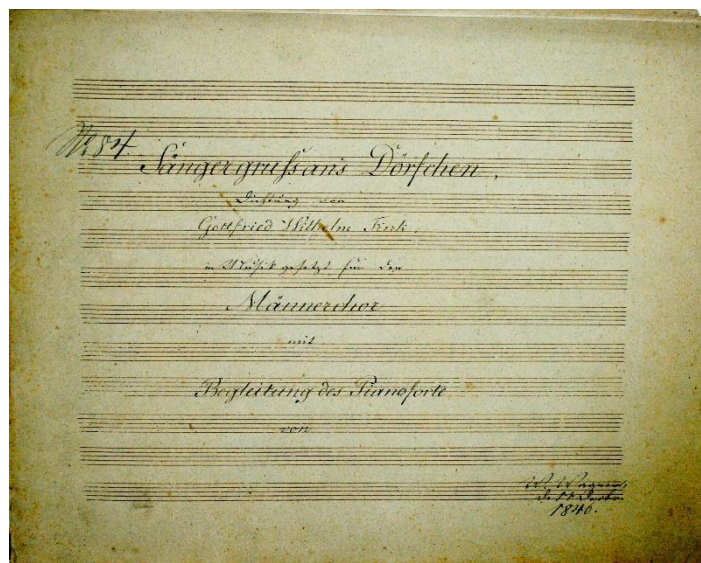 № 84
Sängergruß an's Dörfchen.
Dichtung von
Gottfried Wilhelm Fink.
in Musik gesetzt für den
Männerchor
mit
Begleitung des Pianoforte
von
W. Wagner,
1840.